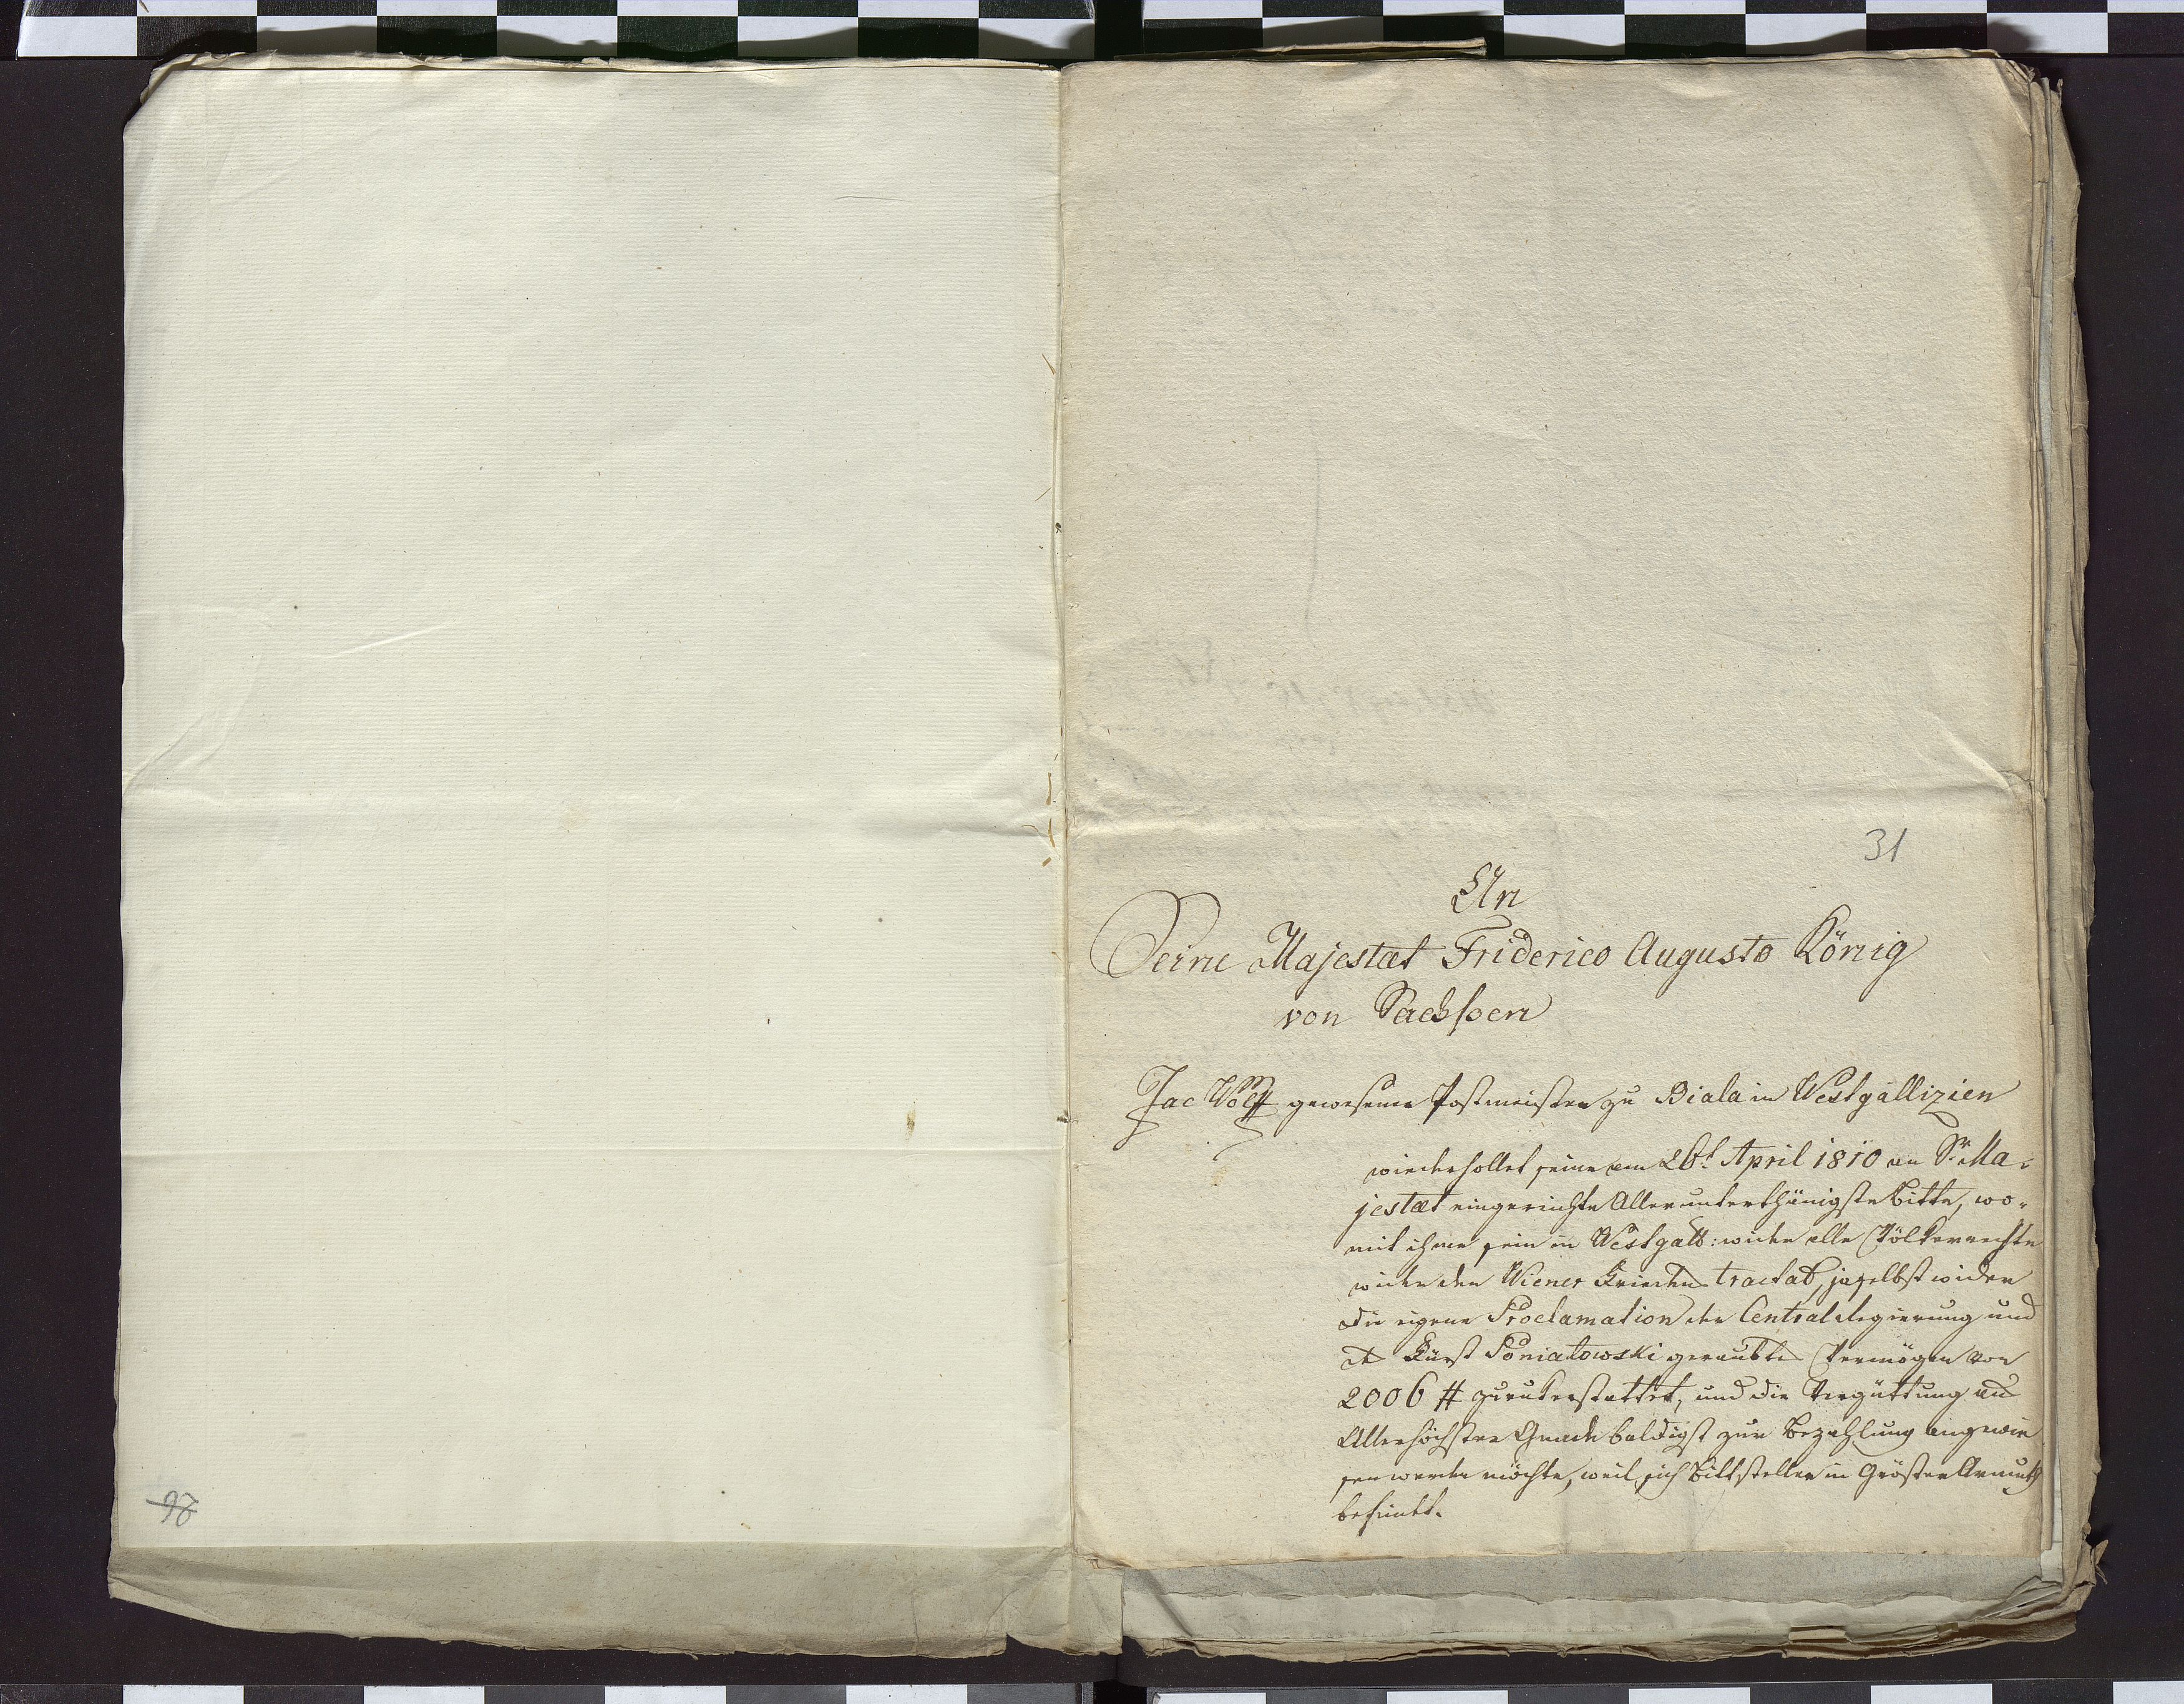 98
31
An
Seine Majestæt Friderico Augusto König
von Sachssen
Jac Wolff gewesener Postmeister zu Biala in Westgallizien
wiederhollet seine am 26t April 1810 an Sr Ma-
jestæt eingereichte Allerunterthänigste Bitte, wo-
mit ihme sein in Westgall: wider alle Völkerrechte
wider den Wiener Frieden tractat, ja selbst wider
die eigene Proclamation der Central Regierung und
Fürst Poniatowski geraubte Vermögen von
2006 # zurukerstattet, und die Vergüttung aus
Allerhöchster Gnade baldigst zur Bezahlung angewie
sen werden möchte, weil sich Bittsteller in Gröster Armuth
befindt.